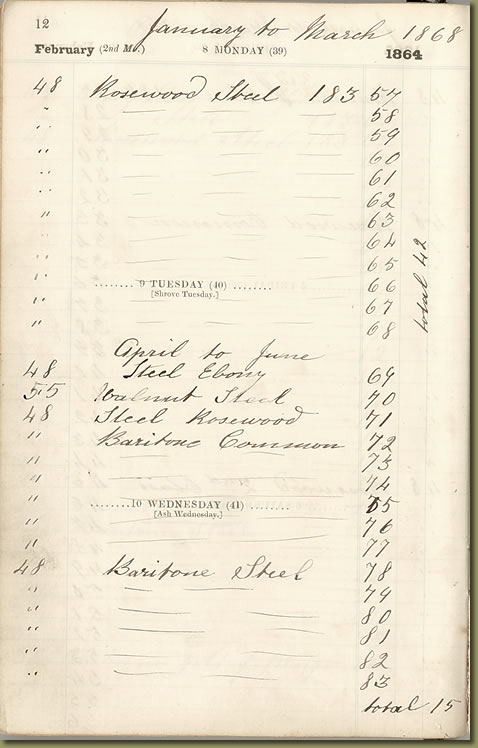 12
January to March 1868
February (2nd Mo.) 8 MONDAY (39) 1864
48 Rosewood Steel 183 57
" 58
" 59
" 60
" 61
" 62
" 63
" 64
" 65
9 TUESDAY (40) 66
[Shrove Tuesday.]
" 67
" 68
total 42
April to June
48 Steel Ebony 69
55 Walnut Steel 70
48 Steel Rosewood 71
" Baritone Common 72
" 73
" 74
10 WEDNESDAY (41) 75
[Ash Wednesday.]
" 76
" 77
48 Baritone Steel 78
" 79
" 80
" 81
" 82
" 83
total 15